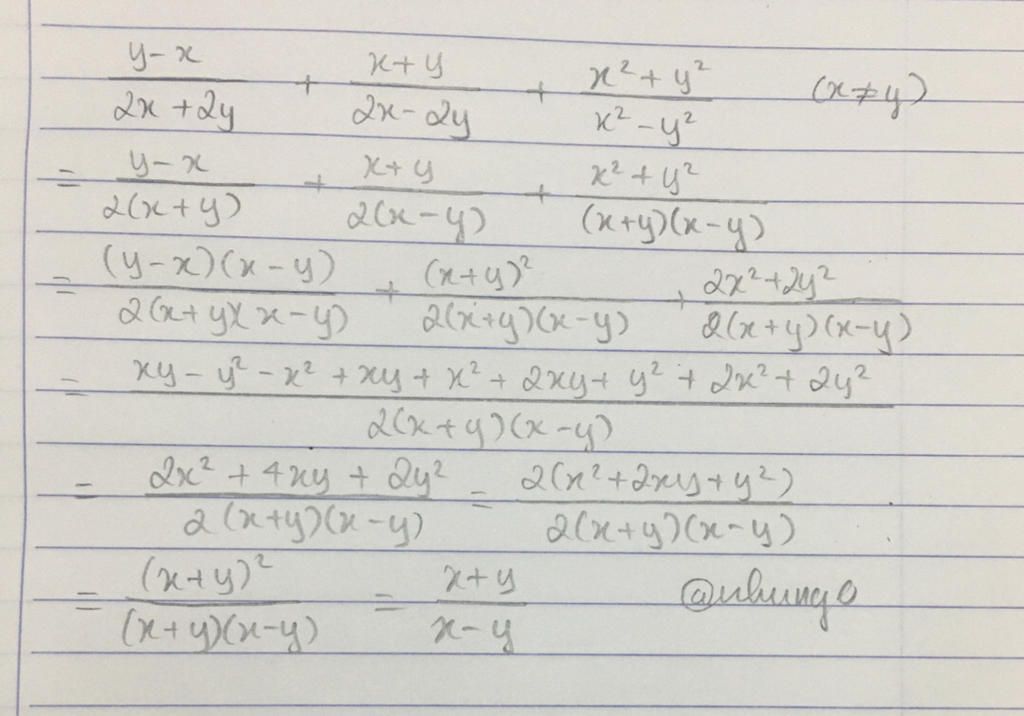 (y-x)/(2x+2y) + (x+y)/(2x-2y) + (x²+y²)/(x²-y²) (x≠y)
= (y-x)/(2(x+y)) + (x+y)/(2(x-y)) + (x²+y²)/((x+y)(x-y))
= ((y-x)(x-y))/(2(x+y)(x-y)) + (x+y)²/(2(x+y)(x-y)) + (2x²+2y²)/(2(x+y)(x-y))
= (xy-y²-x²+xy+x²+2xy+y²+2x²+2y²)/(2(x+y)(x-y))
= (2x²+4xy+2y²)/(2(x+y)(x-y)) = (2(x²+2xy+y²))/(2(x+y)(x-y))
= (x+y)²/((x+y)(x-y)) = (x+y)/(x-y)